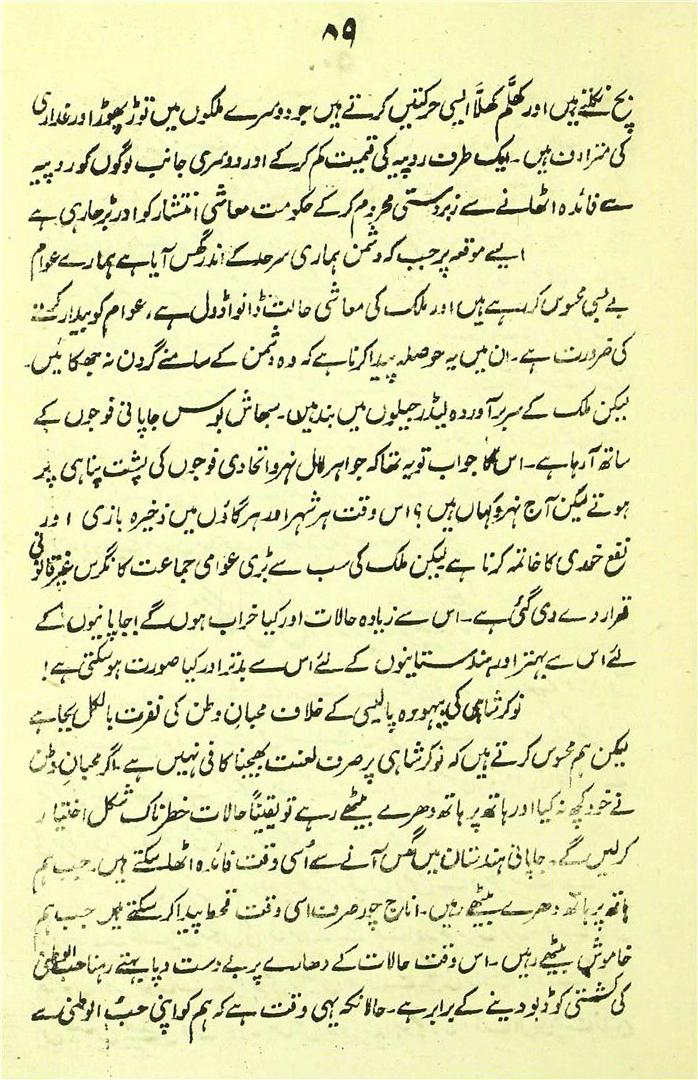 ۸۹
بچ نکلتے ہیں اور کھلّم کھلّا ایسی حرکتیں کرتے ہیں جو دوسرے ملکوں میں توڑ پھوڑ اور غداری
کی مترادف ہیں۔ ایک طرف روپیہ کی قیمت کم کر کے اور دوسری جانب لوگوں کو روپیہ
سے فائدہ اٹھانے سے زبردستی محروم کر کے حکومت معاشی انتشار کو اور بڑھا رہی ہے
ایسے موقعہ پر جب کہ دشمن ہماری سرحد کے اندر گھس آیا ہے ہمارے عوام
بے بسی محسوس کر رہے ہیں اور ملک کی معاشی حالت ڈانواڈول ہے، عوام کو بیدار کرنے
کی ضرورت ہے۔ ان میں یہ حوصلہ پیدا کرنا ہے کہ وہ دشمن کے سامنے گردن نہ جھکائیں۔
لیکن ملک کے سربرآوردہ لیڈر جیلوں میں بند ہیں۔ سبھاش بوس جاپانی فوجوں کے
ساتھ آ رہا ہے۔ اس کا جواب تو یہ تھا کہ جواہر لال نہرو اتحادی فوجوں کی پشت پناہی پر
ہوتے لیکن آج نہرو کہاں ہیں؟ اس وقت ہر شہر اور ہر گاؤں میں ذخیرہ بازی اور
نفع خوری کا خاتمہ کرنا ہے لیکن ملک کی سب سے بڑی عوامی جماعت کانگرس غیر قانونی
قرار دے دی گئی ہے۔ اس سے زیادہ حالات اور کیا خراب ہوں گے! جاپانیوں کے
لئے اس سے بہتر اور ہندستانیوں کے لئے اس سے بدتر اور کیا صورت ہو سکتی ہے!
نوکر شاہی کی بیہودہ پالیسی کے خلاف محبانِ وطن کی نفرت بالکل بجا ہے
لیکن ہم محسوس کرتے ہیں کہ نوکر شاہی پر صرف لعنت بھیجنا کافی نہیں ہے۔ اگر محبانِ وطن
نے خود کچھ نہ کیا اور ہاتھ پر ہاتھ دھرے بیٹھے رہے تو یقیناً حالات خطرناک شکل اختیار
کر لیں گے۔ جاپانی ہندستان میں گھس آنے سے اُسی وقت فائدہ اٹھا سکتے ہیں۔ جب ہم
ہاتھ پر ہاتھ دھرے بیٹھے رہیں۔ اناج چور صرف اسی وقت قحط پیدا کر سکتے ہیں جب ہم
خاموش بیٹھے رہیں۔ اس وقت حالات کے دھارے پر بے دست و پا بہتے رہنا حب الوطنی
کی کشتی کو ڈبو دینے کے برابر ہے۔ حالانکہ یہی وقت ہے کہ ہم کو اپنی حبُ الوطنی سے